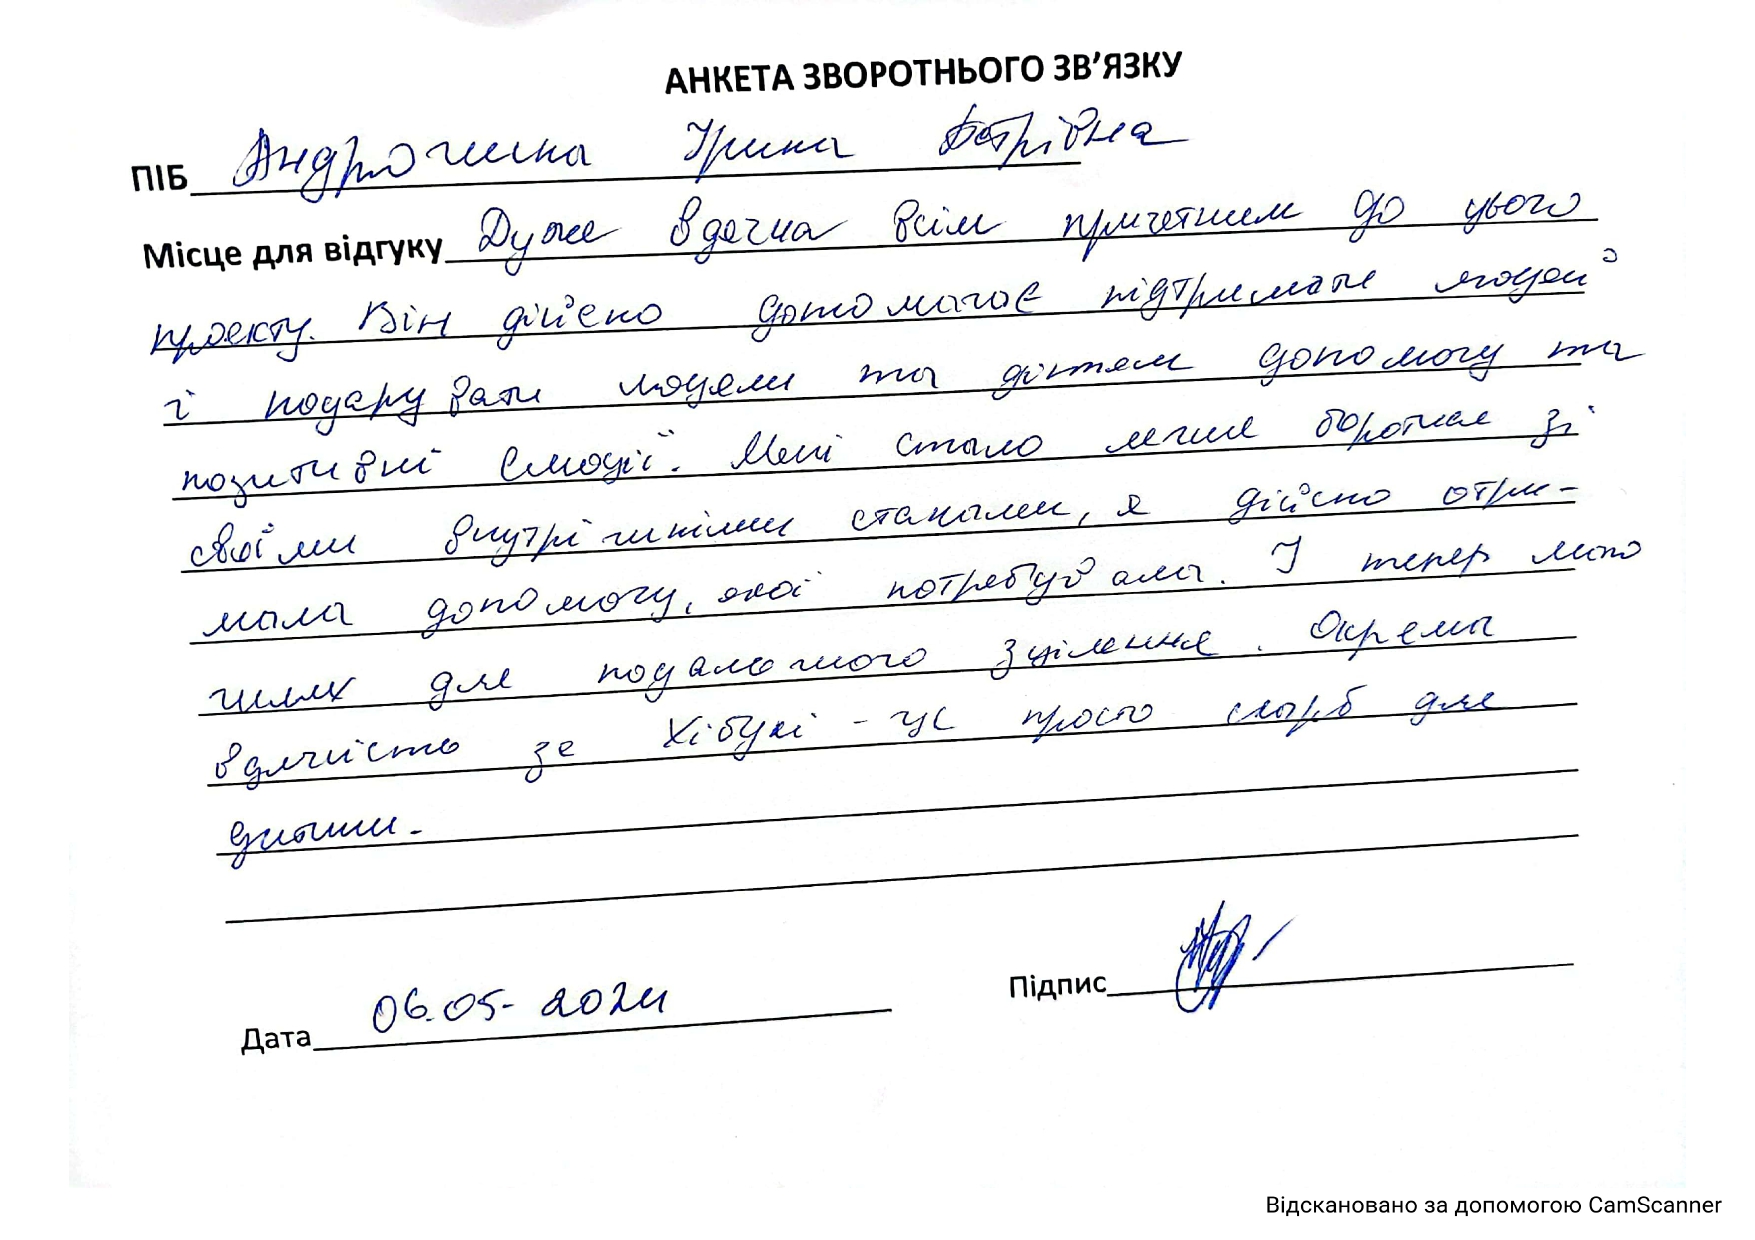 АНКЕТА ЗВОРОТНЬОГО ЗВ’ЯЗКУ
ПІБ Ірина
Місце для відгуку Дуже вдячна всім причетним до цього
проекту. Він дійсно допомагає підтримати людей
і подарувати людям та дітям допомогу та
позитивні емоції. Мені стало легше боротися зі
своїми внутрішніми станами, я дійсно отри-
мала допомогу, якої потребувала. І тепер маю
шлях для подальшого зцілення. Окрема
вдячність за Хібукі - це просто скарб для
дитини.
Дата 06.05-2024
Підпис
Відскановано за допомогою CamScanner